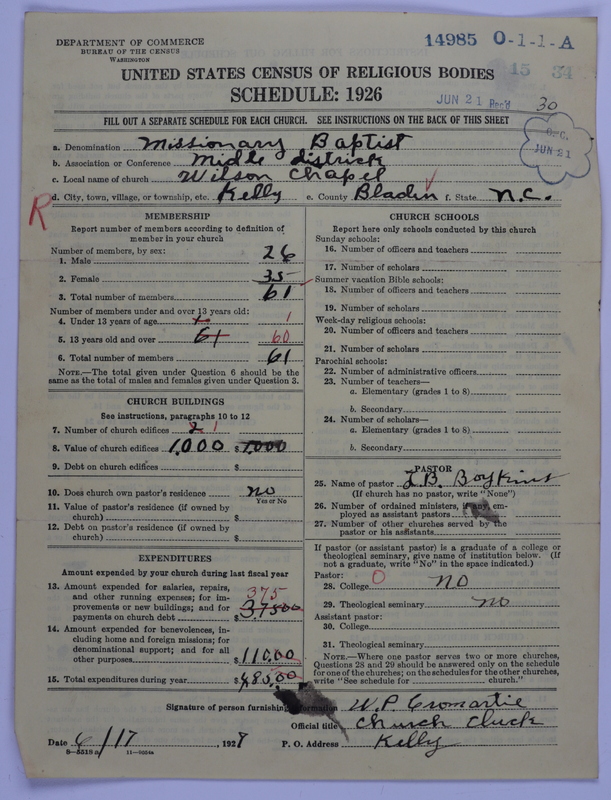 DEPARTMENT OF COMMERCE
BUREAU OF THE CENSUS
WASHINGTON
14985 O-1-1-A
15 34
UNITED STATES CENSUS OF RELIGIOUS BODIES
SCHEDULE: 1926
JUN 21 Rec'd 30
FILL OUT A SEPARATE SCHEDULE FOR EACH CHURCH. SEE INSTRUCTIONS ON THE BACK OF THIS SHEET
JUN 21
a. Denomination Missionary Baptist
b. Association or Conference Midle districk
c. Local name of church Wilson Chapel
d. City, town, village, or township, etc. Kelly e. County Bladin f. State N.C.
R
MEMBERSHIP
Report number of members according to definition of
member in your church
Number of members, by sex:
1. Male 26
2. Female 35
3. Total number of members 61
Number of members under and over 13 years old:
4. Under 13 years of age 1
5. 13 years old and over 61 60
6. Total number of members 61
NOTE.—The total given under Question 6 should be
same as the total of males and females given under Question 3.
CHURCH BUILDINGS
See instructions, paragraphs 10 to 12
7. Number of church edifices 2 1
8. Value of church edifices 1,000 $ 1,000
9. Debt on church edifices $
10. Does church own pastor's residence no
Yes or No
11. Value of pastor's residence (if owned by
church) $
12. Debt on pastor's residence (if owned by
church) $
EXPENDITURES
Amount expended by your church during last fiscal year
13. Amount expended for salaries, repairs, 375
and other running expenses; for im-
provements or new buildings; and for
payments on church debt $ 37500
14. Amount expended for benevolences, in-
cluding home and foreign missions; for
denominational support; and for all
other purposes $ 110.00
15. Total expenditures during year $ 485.00
CHURCH SCHOOLS
Report here only schools conducted by this church
Sunday schools:
16. Number of officers and teachers
17. Number of scholars
Summer vacation Bible schools:
18. Number of officers and teachers
19. Number of scholars
Week-day religious schools:
20. Number of officers and teachers
21. Number of scholars
Parochial schools:
22. Number of administrative officers
23. Number of teachers—
a. Elementary (grades 1 to 8)
b. Secondary
24. Number of scholars—
a. Elementary (grades 1 to 8)
b. Secondary
PASTOR
25. Name of pastor L.B. Boykins
(If church has no pastor, write "None")
26. Number of ordained ministers, if any, em-
ployed as assistant pastors
27. Number of other churches served by the
pastor or his assistants
If pastor (or assistant pastor) is a graduate of a college or
theological seminary, give name of institution below. (If
not a graduate, write "No" in the space indicated.)
Pastor: O
28. College no
29. Theological seminary no
Assistant pastor:
30. College
31. Theological seminary
NOTE.—Where one pastor serves two or more churches,
Questions 28 and 29 should be answered only on the schedule
for one of the churches; on the schedules for the other churches,
write "See schedule for church."
Signature of person furnishing information W.P. Cromartie
Official title Church Cluck
Date 6/17, 1927 P. O. Address Kelly
8-5518a 11-9054a